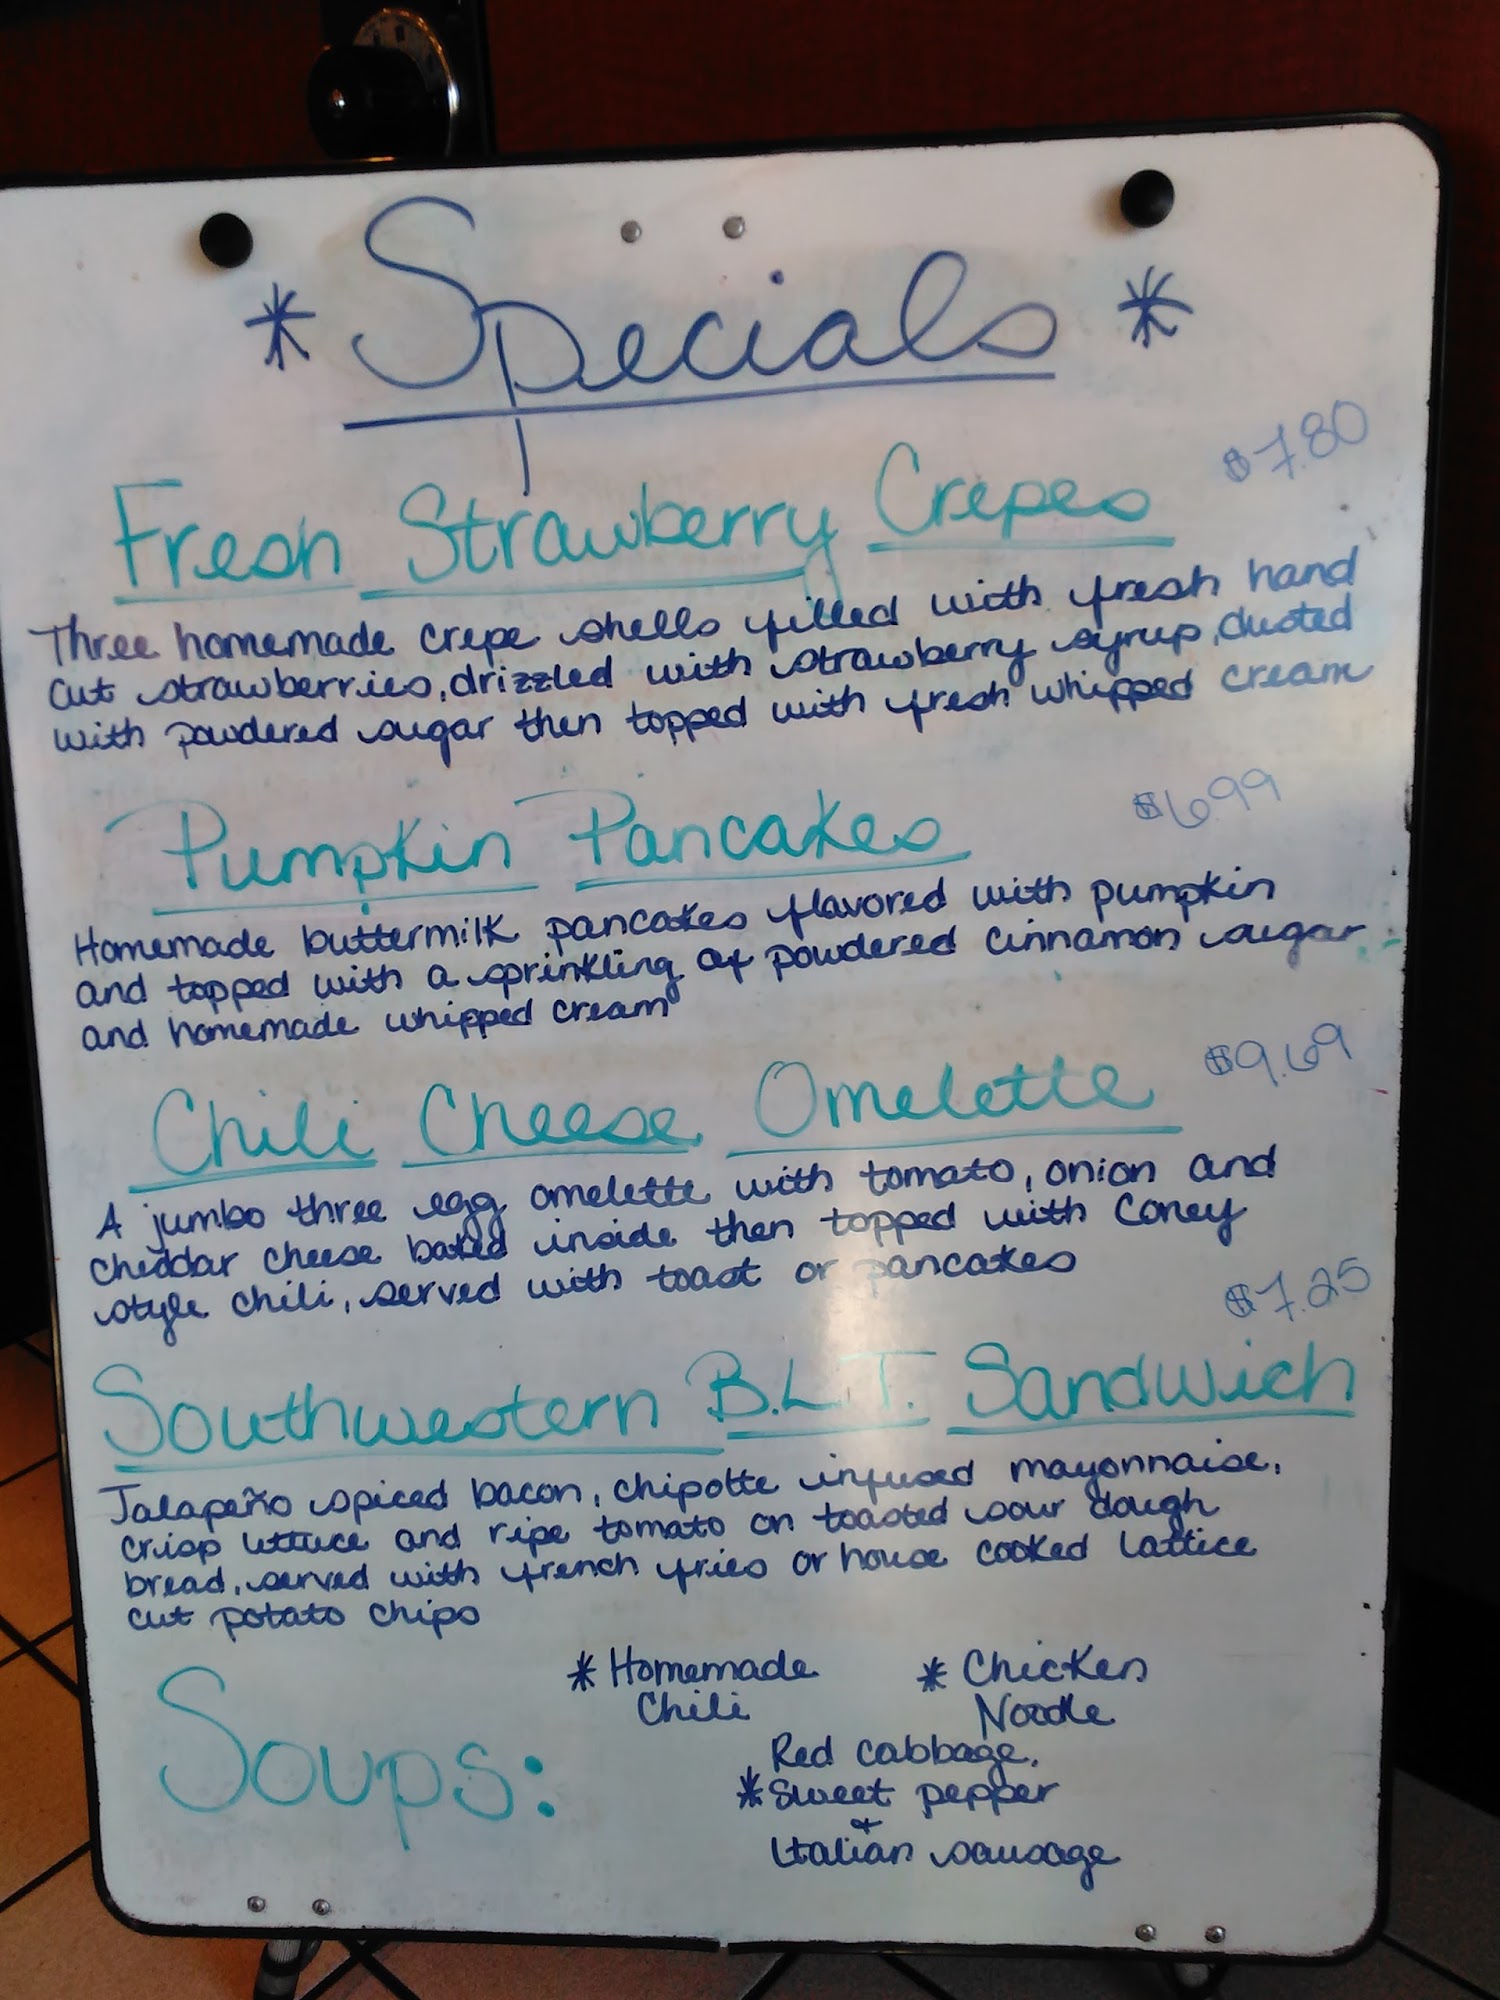 * Specials *
Fresh Strawberry Crepes $7.80
Three homemade crepe shells filled with fresh hand
cut strawberries, drizzled with strawberry syrup, dusted
with powdered sugar then topped with fresh whipped cream
Pumpkin Pancakes $6.99
Homemade buttermilk pancakes flavored with pumpkin
and topped with a sprinkling of powdered cinnamon sugar
and homemade whipped cream
Chili Cheese Omelette $9.69
A jumbo three egg omelette with tomato, onion and
cheddar cheese baked inside then topped with Coney
style chili, served with toast or pancakes
Southwestern B.L.T. Sandwich $7.25
Jalapeño spiced bacon, chipotte infused mayonnaise,
crisp lettuce and ripe tomato on toasted sour dough
bread, served with french fries or house cooked lattice
cut potato chips
Soups:
* Homemade
Chili
* Chicken
Noodle
Red cabbage,
* Sweet pepper
&
Italian sausage